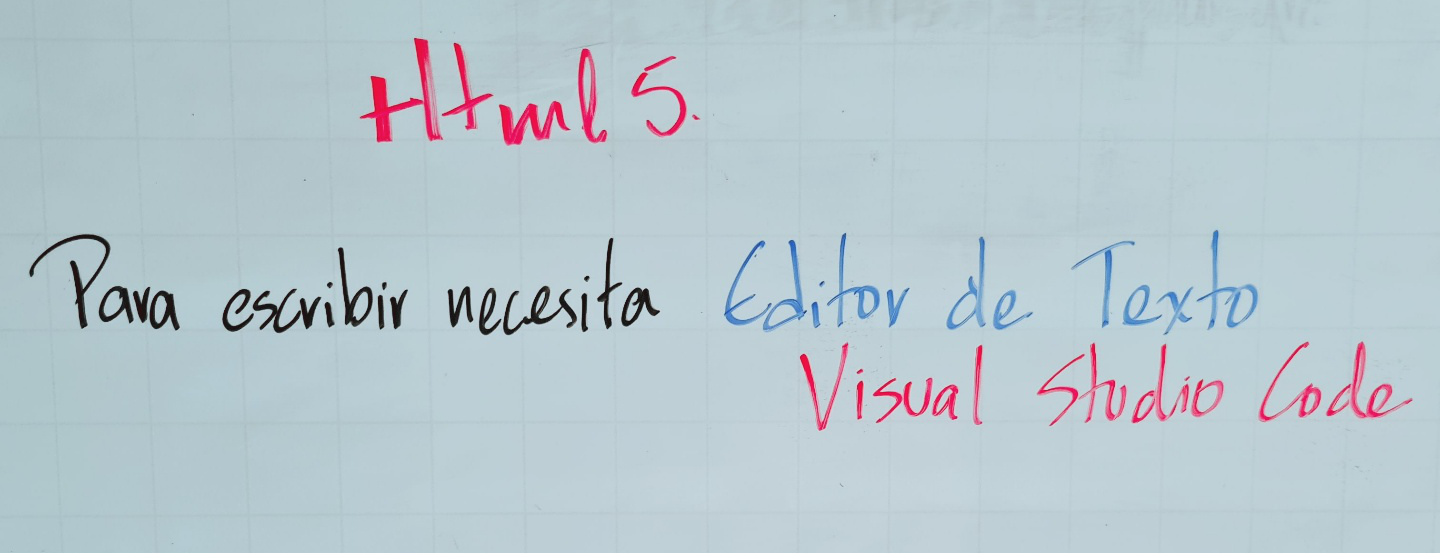 Html 5.
Para escribir necesita Editor de Texto
Visual Studio Code